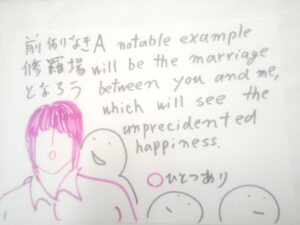 前例なき
修羅場
となろう
A notable example
will be the marriage
between you and me,
which will see the
unprecidented
happiness.
○ひとつあり